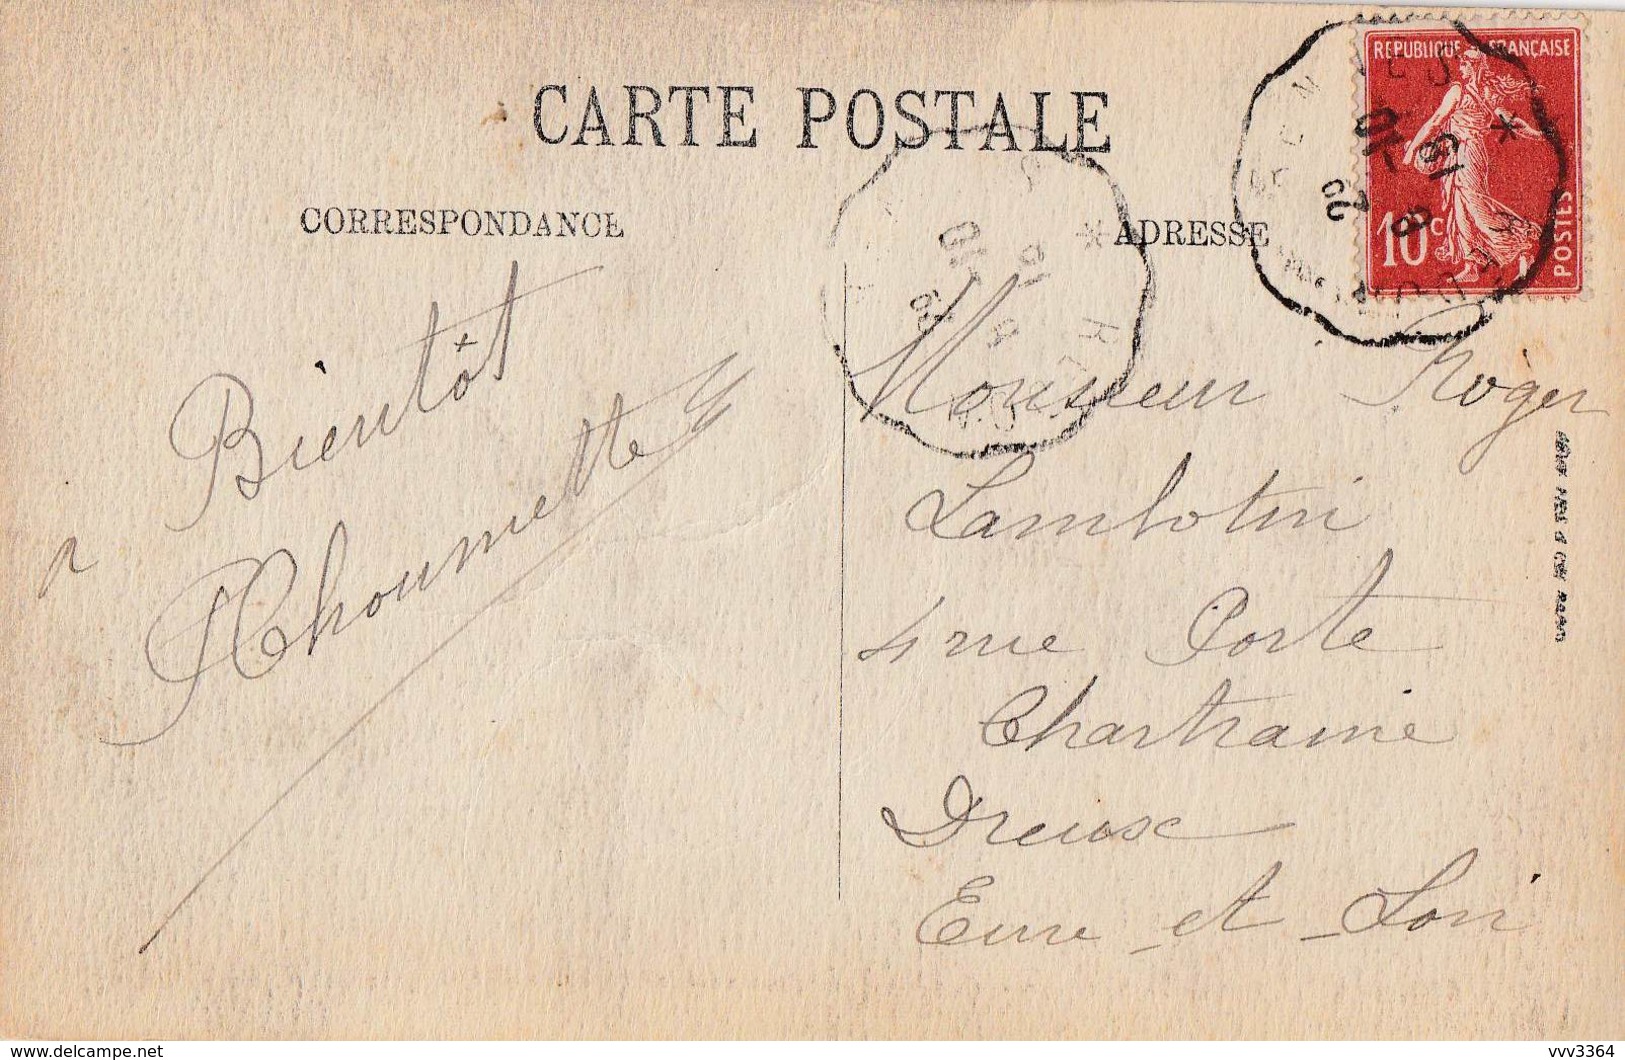 CARTE POSTALE
CORRESPONDANCE
ADRESSE
REPUBLIQUE FRANÇAISE
10c
POSTES
a Bientôt
Choumette
Monsieur Roger
Lambotin
4 rue Porte
Chartraine
Dreux
Eure-et-Loir
delcampe.net
vvv3364